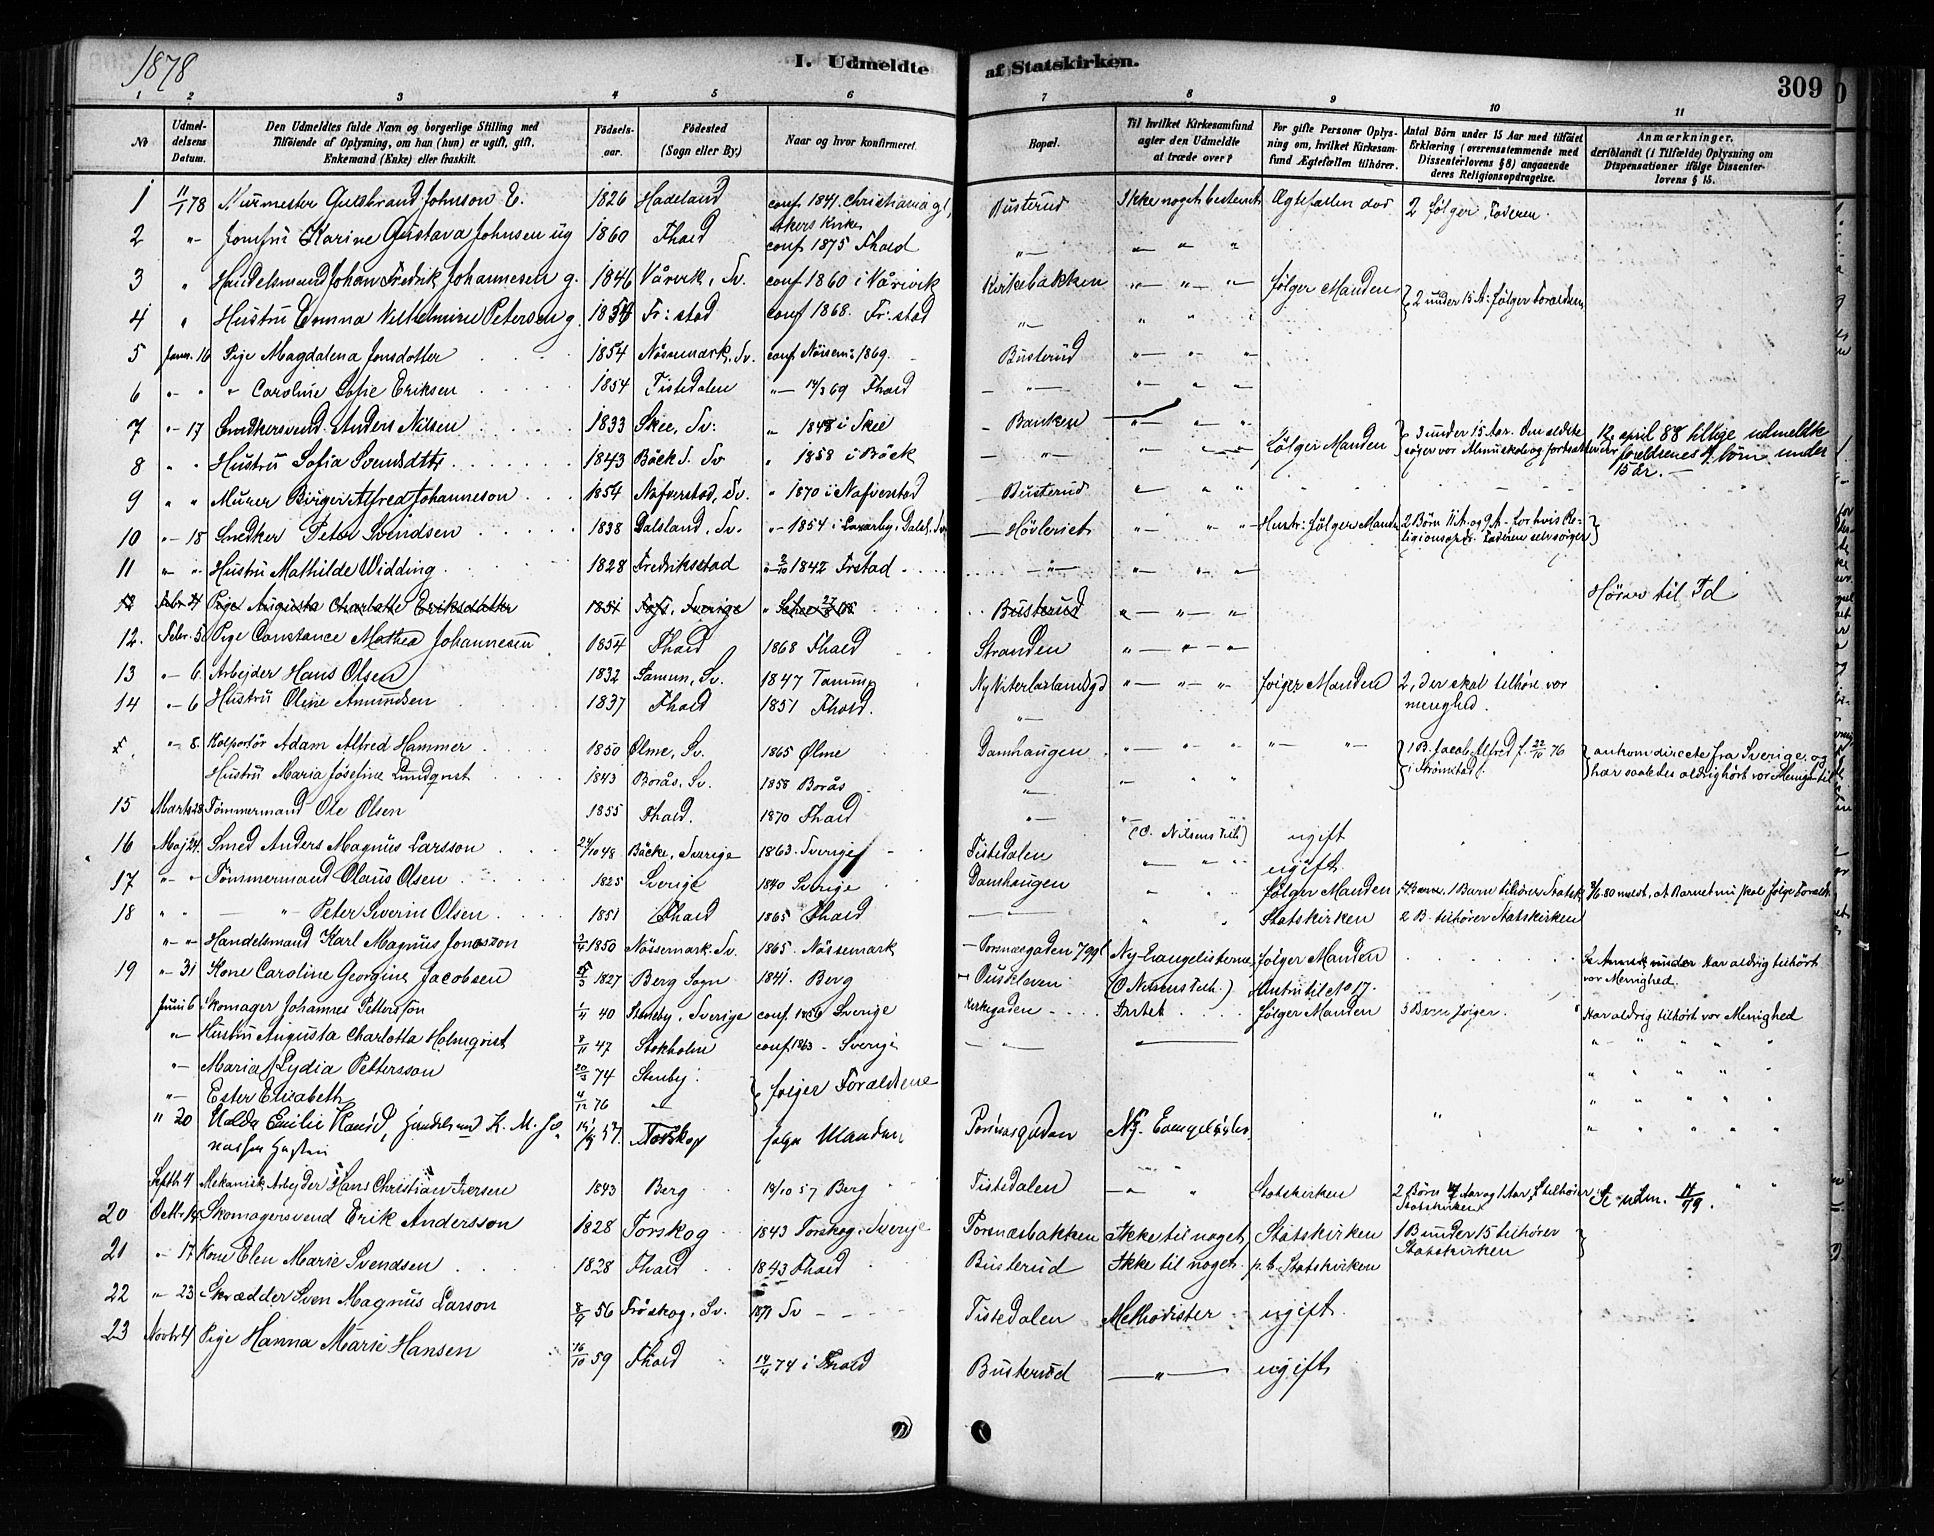 1878
I. Udmeldte af Statskirken.
309
1 2 3 4 5 6 7 8 9 10 11
No
Udmeldelsens Datum.
Den Udmeldtes fulde Navn og borgerlige Stilling med Tilføiende af Oplysning, om han (hun) er ugift, gift, Enkemand (Enke) eller fraskilt.
Fødselsaar.
Fødested (Sogn eller By.)
Naar og hvor konfirmeret.
Bopæl.
Til hvilket Kirkesamfund agter den Udmeldte at træde over?
For gifte Personer Oplysning om, hvilket Kirkesamfund Ægtefællen tilhører.
Antal Børn under 15 Aar med tilføiet Erklæring (overensstemmende med Dissenterlovens § 8) angaaende deres Religionsopdragelse.
Anmærkninger, deriblandt (i Tilfælde) Oplysning om Dispensationer ifølge Dissenterlovens § 15.
1 11/1 78 Murmester Gulbrand Johnson E. 1826 Hadeland conf 1841 Christiania gl. Akers Kirke Busterud Ikke noget bestemt Ægtefællen død 2 følger Faderen.
2 " Jomfru Karine Gustava Johnsen ug 1860 Fhald conf 1875 Fhald " " " "
3 " Handelsmand Johan Fredrik Johannesen g. 1846 Vårvik, Sv. conf 1860 i Vårvik Kirkebakken " " " følger Manden } 2 under 15 A: følger Forældrene
4 " Hustru Emma Vilhelmine Petersen g. 1854 Fr:stad conf 1868. Fr:stad " " " "
5 Janr. 16 Pige Magdalena Jonsdotter 1854 Nössemark, Sv. conf Nössem: 1869. Busterud " " "
6 " " " Caroline Sofie Eriksen 1854 Tistedalen " 14/3 69 Fhald " " " "
7 " 17 Snedkersvend Anders Nilsen 1833 Skee, Sv: " 1848 i Skee Banken " " " 3 under 15 Aar. Den ældste
8 " " Hustru Sofia Svendsdttr 1843 Bäck S. Sv " 1858 i Bäck " " " følger Manden søger vor Almuskole og fortsætter 12 april 88 tillige udmeldte forældrenes 4 børn under 15 år.
9 " " Murer Birger Alfred Johanneson 1854 Nafverstad, Sv. " 1870 i Nafverstad Busterud " " "
10 " 18 Snedker Peter Svendsen 1838 Dalsland, Sv. " 1854 i Dalsl. Sv. Høvleriet " " " Hustr: følger Manden 2 Børn 11 A. og 9 A. for hvis Religionsopdr. Faderen selv sørger }
11 " " Hustru Mathilde Widding 1828 Fredriksstad " 2/10 1842 Frstad " " " "
12 Febr 4 Pige Augusta Charlotte Eriksdatter 1851 Sverige " 27/8 Busterud " " " Hører til Id
12. Febr. 5 Pige Constance Mathea Johannesen 1854 Fhald 1868 Fhald Stranden " " "
13 " 6. Arbejder Hans Olsen 1832 Tanum, Sv. 1847 Tanum " " " følger Manden 2, der skal tilhøre vor menighed.
14 " 6 Hustru Oline Amundsen 1837 Fhald 1851 Fhald. "
" 8. Kolportör Adam Alfred Hammer 1850 Ølme, Sv. 1865 Ølme Damhaugen " " " " " } 1 B. Jacob Alfred f. 22/10 76 i Strömstad. } ankom directe fra Sverige og har saaledes aldrig hørt vor Menighed til
Hustru Maria Josefine Lundqvist 1843 Borås, Sv. 1858 Borås " " " "
15 Marts 28 Tømmermand Ole Olsen 1855 Fhald. 1870 Fhald " " (O. Nilsens Tilh.) ugift
16 Maj 24. Smed Anders Magnus Larsson 24/10 48 Bäcke, Sverige 1863. Sverige Tistedalen " " " ugift
17 " " Tømmermand Olaus Olsen 1825 Sverige 1840 Sverige Damhaugen " " følger Manden 1 Barn tilhører Statsk. 3/6 80 meldt, at Barnet nu skal følge Foræld.
18 " " — " Peter Severin Olsen 1851 Fhald 1865 Fhald " " " Statskirken 2 B. tilhører Statskirken
" " Handelsmand Karl Magnus Jonasson 2/4 1850 Nössemark. Sv. 1865. Nössemark Porsnæsgaden 799 Ny-Evangelisterne følger Manden
19 " 31 Kone Caroline Georgine Jacobsen 25/3 1827 Berg Sogn 1841. Berg Ouseklaven (O Nilsens Tilh.) Mantru til No 17. Har aldrig tilhørt vor Menighed.
Juni 6 Skomager Johannes Pettersson 1/4 40 Steneby, Sverige conf. 1856 Sverige Kirkegaden Intet følger Manden 3 Børn følger. Har aldrig tilhørt vor Menighed
" Hustru Augusta Charlotta Holmqvist 8/11 47 Stokholm conf 1863 - Sverige " " " " " "
" Maria Lydia Pettersson 20/3 74 Stenby. } følger Forældrene " " " " "
" Ester Elisabeth 4/12 76 " " " " " "
" 20 Hulda Emilie Handelsmand K. M. Jonasson Hustru 57. Torskog følger Manden Porsnæsgaden Ny. Evangelister " " " " "
Septb 4 Mekanisk Arbejder Hans Christian Iversen 1843 Berg 18/10 57 Berg Tistedalen " " Statskirken 2 Børn 7 Aar og 1 Aar, tilhører Statskirken udm. 17/79.
20 Octbr. 14 Skomagersvend Erik Andersson 1828 Torskog 1843 Torskog. Sverige Porsnæsbakken Ikke til noget Statskirken 1 B under 15 tilhører Statskirken }
21 " 17 Kone Elen Marie Svendsen 1828 Fhald 1843 Fhald Busterud Ikke til noget p. t. Statskirken
22 " 23 Skrædder Sven Magnus Larson 8/4 56 Fröskog, Sv. 1871 Sv Tistedalen Methodister ugift
23 Novbr 4 Pige Hanna Marie Hansen 16/10 59 Fhald 14/4 74 i Fhald Busterud " ugift